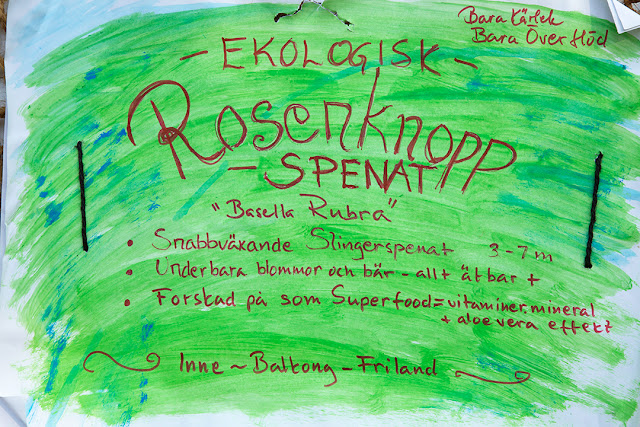 Bara Kärlek
Bara Överflöd
- EKOLOGISK -
Rosenknopp
- SPENAT
"Basella Rubra"
• Snabbväxande Slingerspenat 3-7m
• Underbara blommor och bär - allt ätbar +
• Forskad på som Superfood = vitaminer, mineral
+ aloe vera effekt
Inne ~ Balkong - Friland